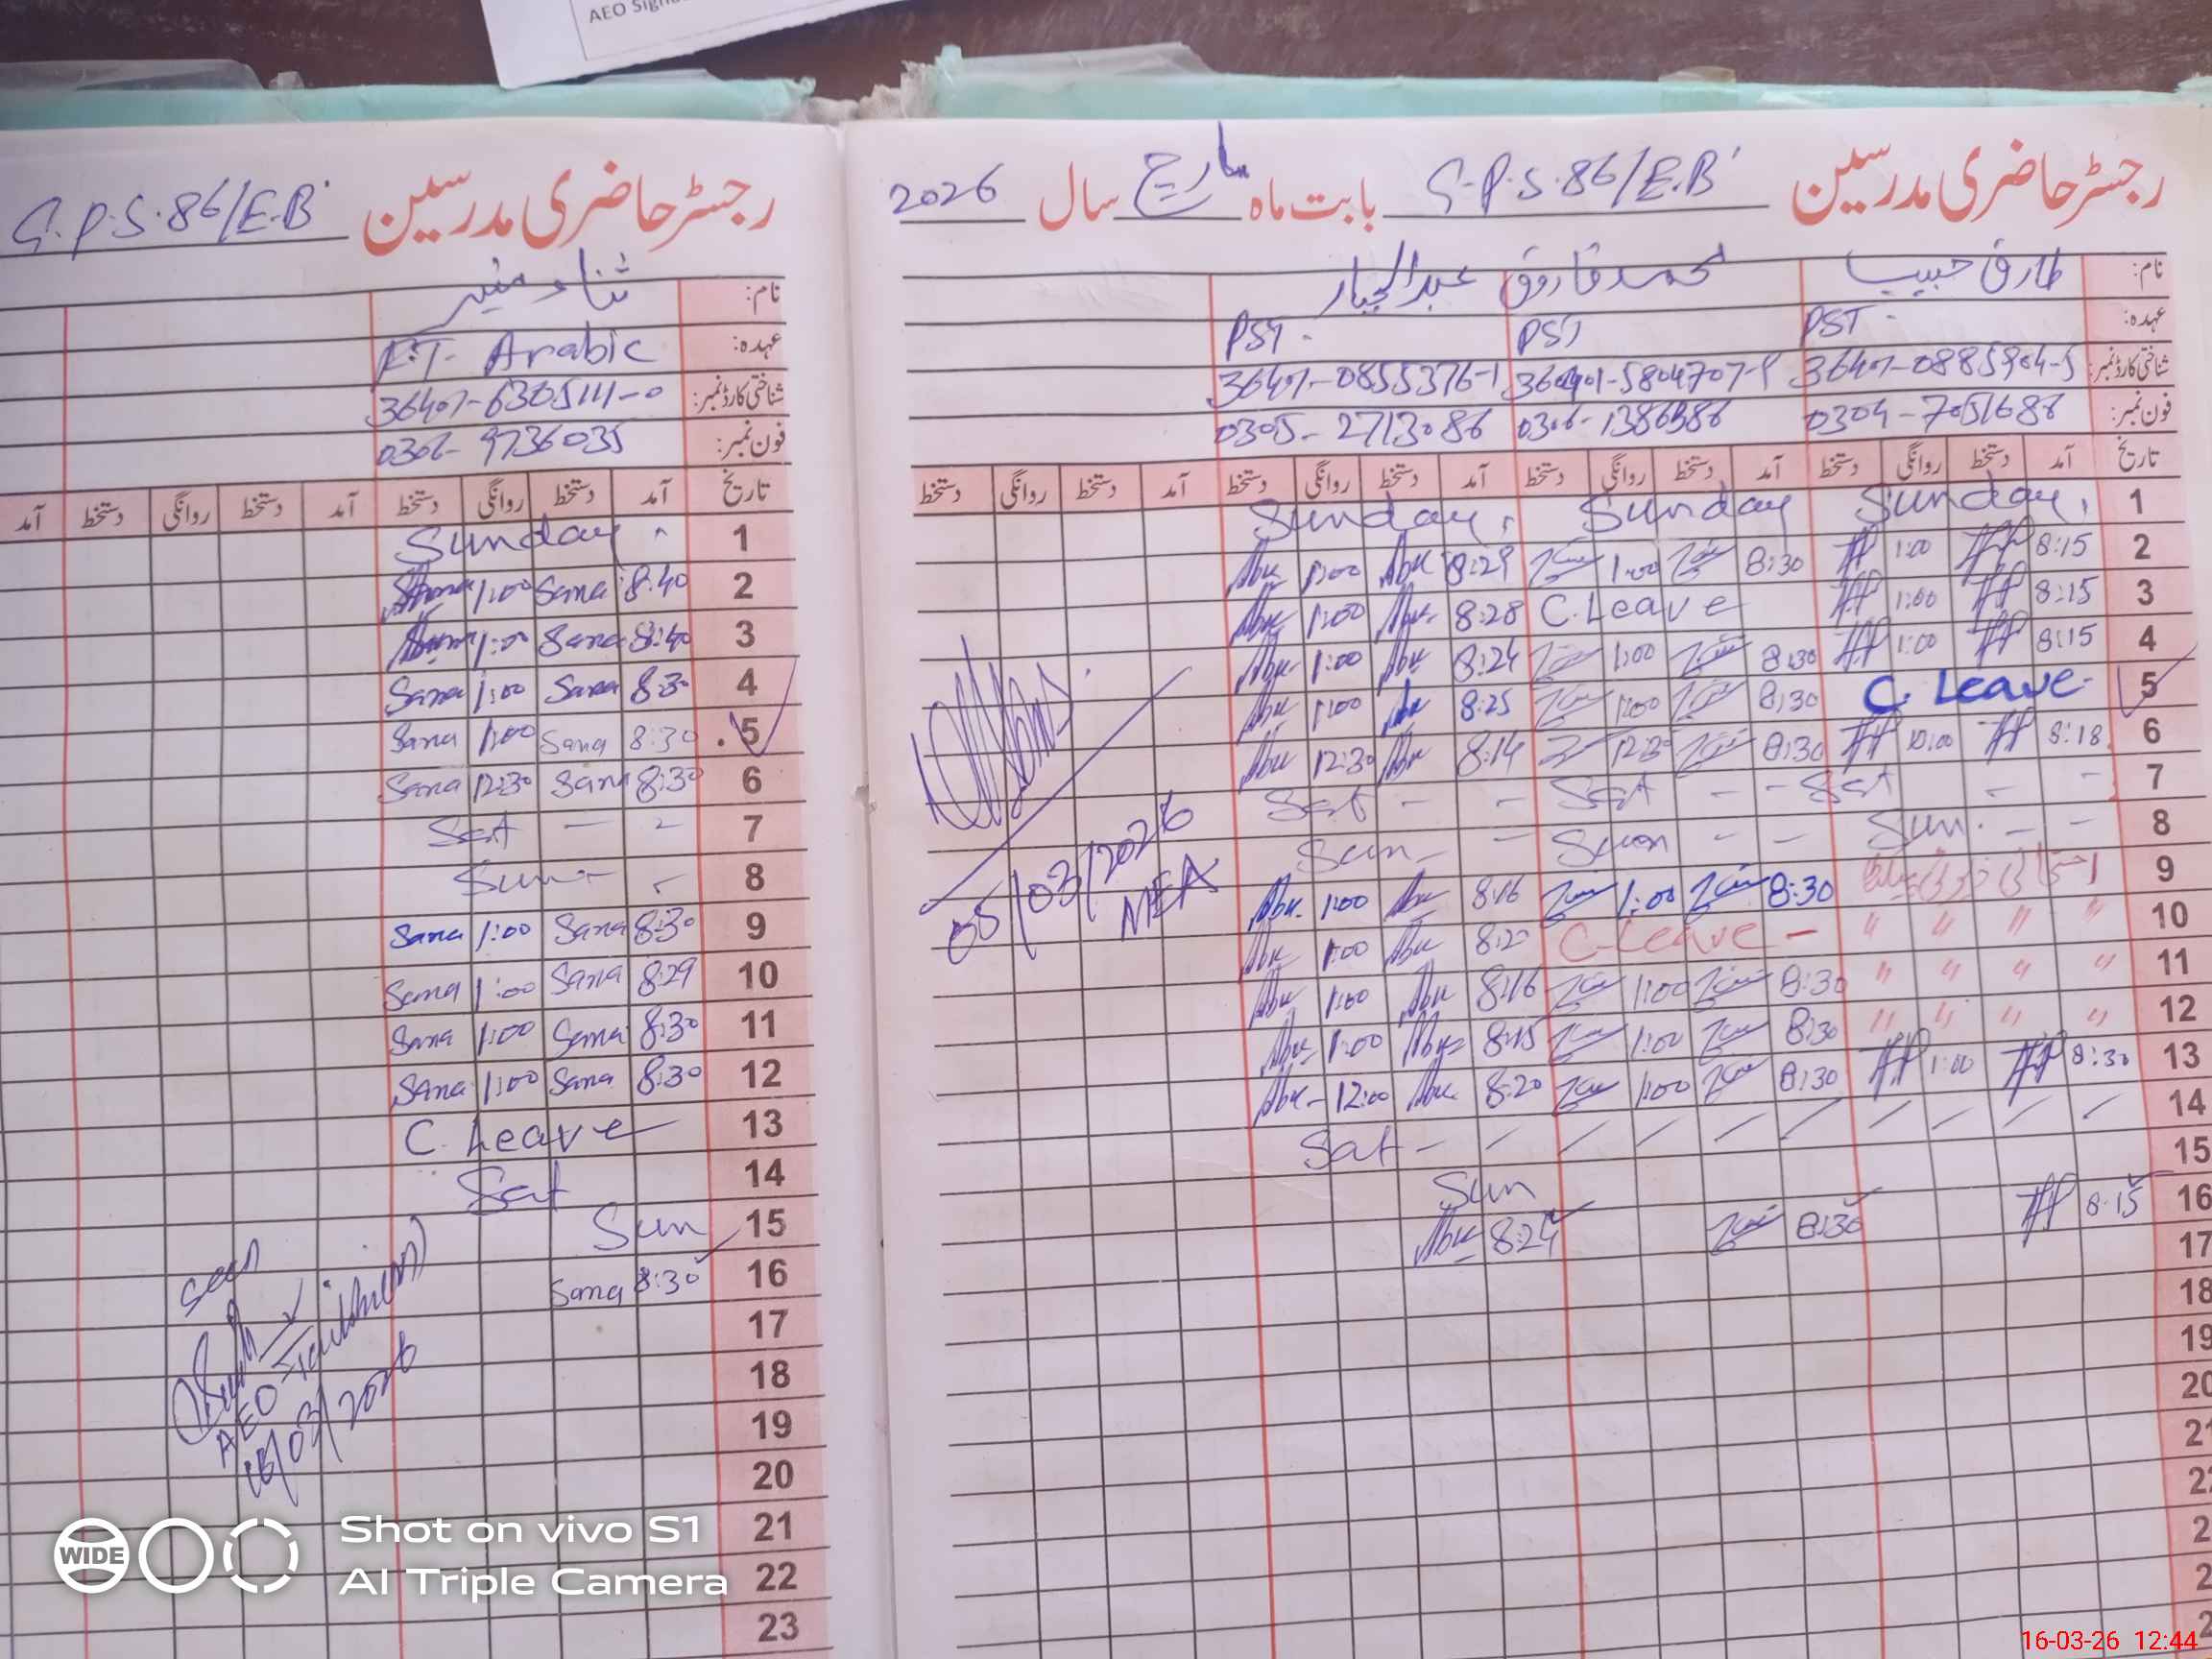 AEO Sign
رجسٹر حاضری مدرسین G.P.S. 86/E.B
نام: ثناء منیر
عہدہ: Arabic
شناختی کارڈ نمبر: 36401-6305111-0
فون نمبر: 0306-9736035
تاریخ آمد دستخط روانگی دستخط آمد دستخط روانگی دستخط آمد
1 Sunday
2 8:40 Sana 1:00
3 8:40 Sana 1:00
4 8:30 Sana 1:00 Sana
5 8:30 Sana 1:00 Sana
6 8:30 Sana 12:30 Sana
7 Sat
8 Sun
9 8:30 Sana 1:00 Sana
10 8:29 Sana 1:00 Sana
11 8:30 Sana 1:00 Sana
12 8:30 Sana 1:00 Sana
13 C. Leave
14 Sat
15 Sun
16 8:30 Sana
17
18
19
20
21
22
23
seen
AEO
16/03/2026
رجسٹر حاضری مدرسین G.P.S. 86/E.B بابت ماہ مارچ سال 2026
نام: طارق حبیب محمد فاروق عبدالجبار
عہدہ: PST PST PST
شناختی کارڈ نمبر:
فون نمبر: 0304-7051686 0305-2713086
تاریخ آمد دستخط روانگی دستخط آمد دستخط روانگی دستخط آمد دستخط روانگی دستخط آمد دستخط روانگی دستخط
1 Sunday Sunday Sunday
2 8:15 1:00 8:30 1:00 8:29 1:00
3 8:15 1:00 C. Leave 8:28 1:00
4 8:15 1:00 8:30 1:00 8:24 1:00
5 C. Leave 8:30 1:00 8:25 1:00
6 8:18 8:30 12:30 8:14 12:30
7 Sat Sat Sat
8 Sun Sun
9 8:30 1:00 8:16 1:00
10 " " " " C-Leave 8:20 1:00
11 " " " " 8:30 1:00 8:16 1:00
12 " " " " 8:30 1:00 8:15 1:00
13 8:30 1:00 8:30 1:00 8:20 12:00
14 Sat
15 Sun
16 8:15 8:30 8:24
17
18
19
20
05/03/2026
MEA
WIDE
Shot on vivo S1
AI Triple Camera
16-03-26 12:44